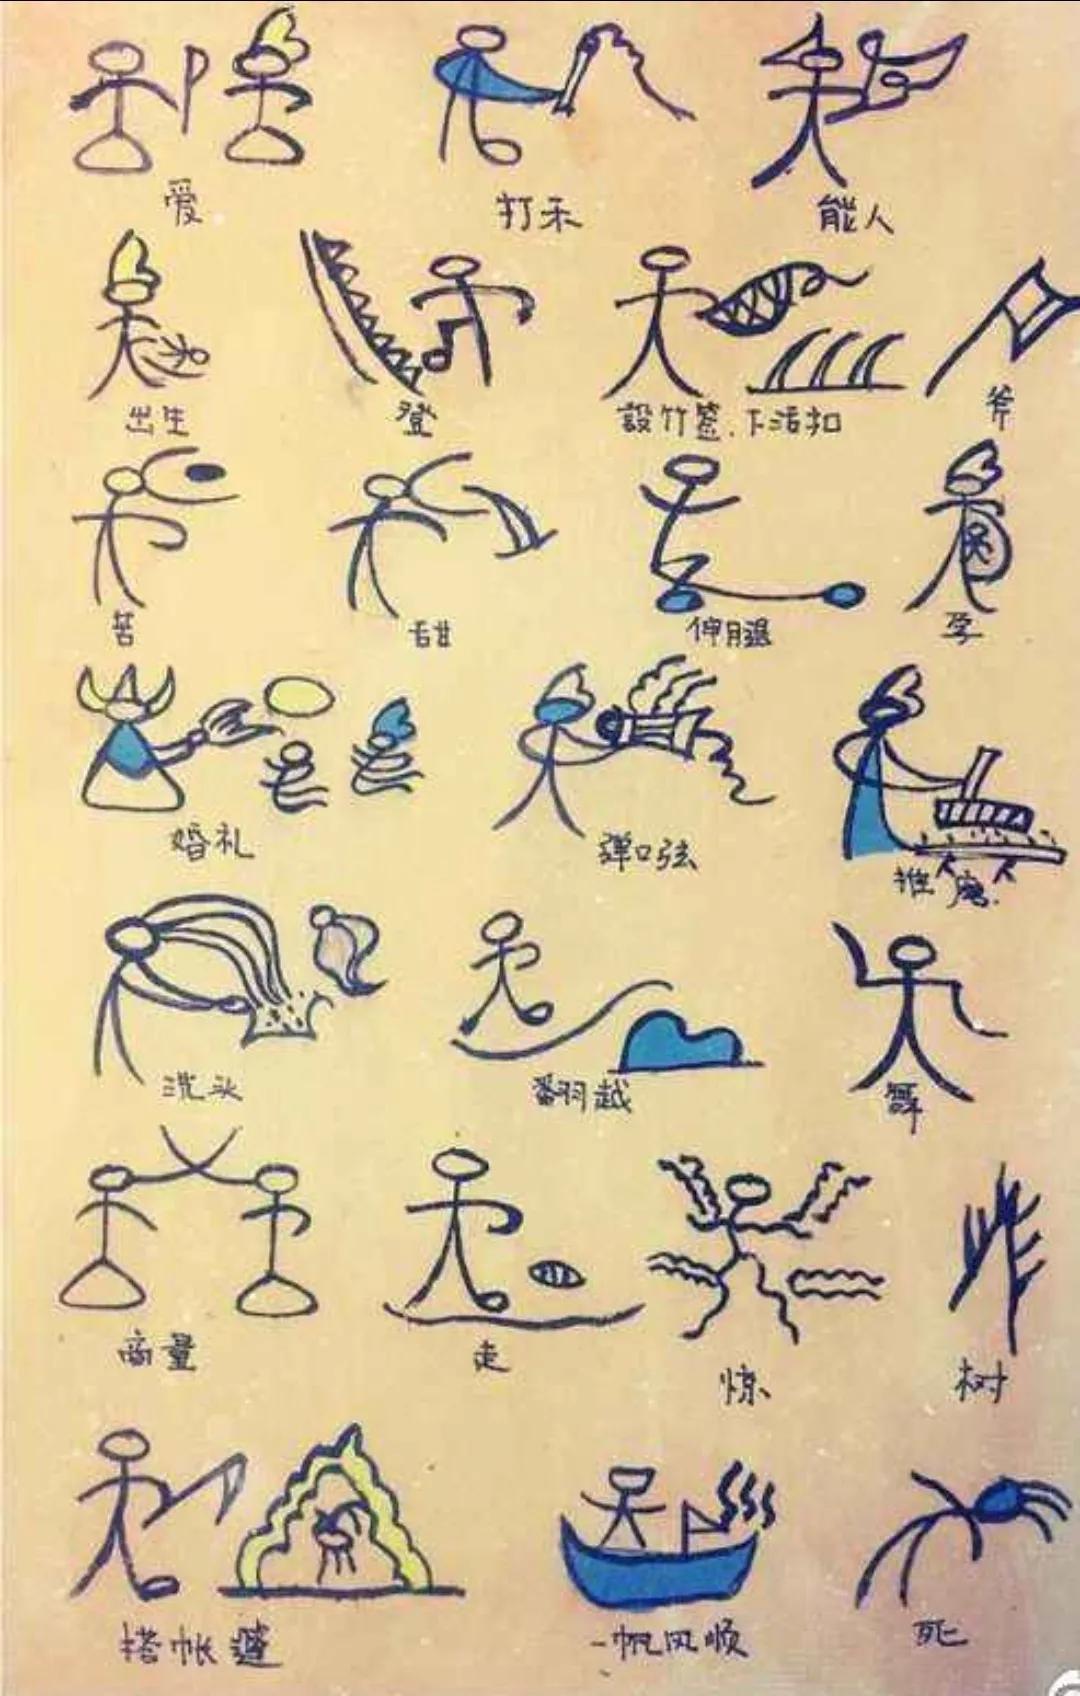 爱 打禾 能人
出生 登 設竹签.下活扣 斧
苦 甜 伸腿 孕
婚礼 弹口弦 推磨.
洗头 翻越 舞
商量 走 惊 树
搭帐篷 一帆风顺 死